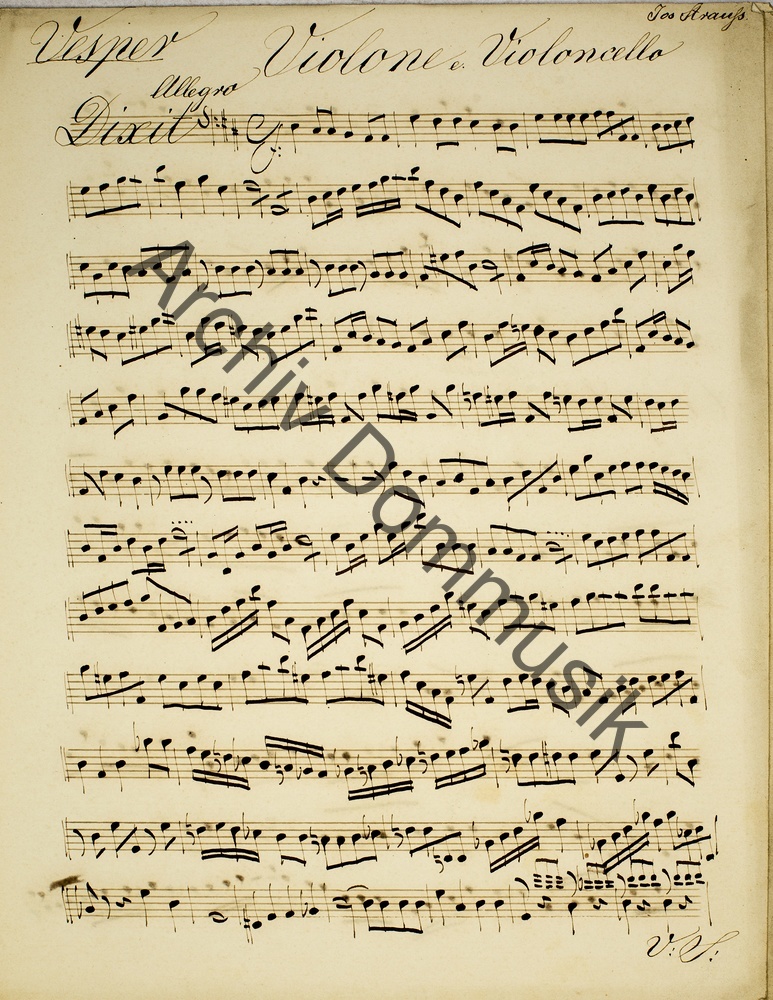 Jos Strauß.
Vesper Violone e. Violoncello
Allegro
Dixit
f:
Archiv Dommusik
V: S: